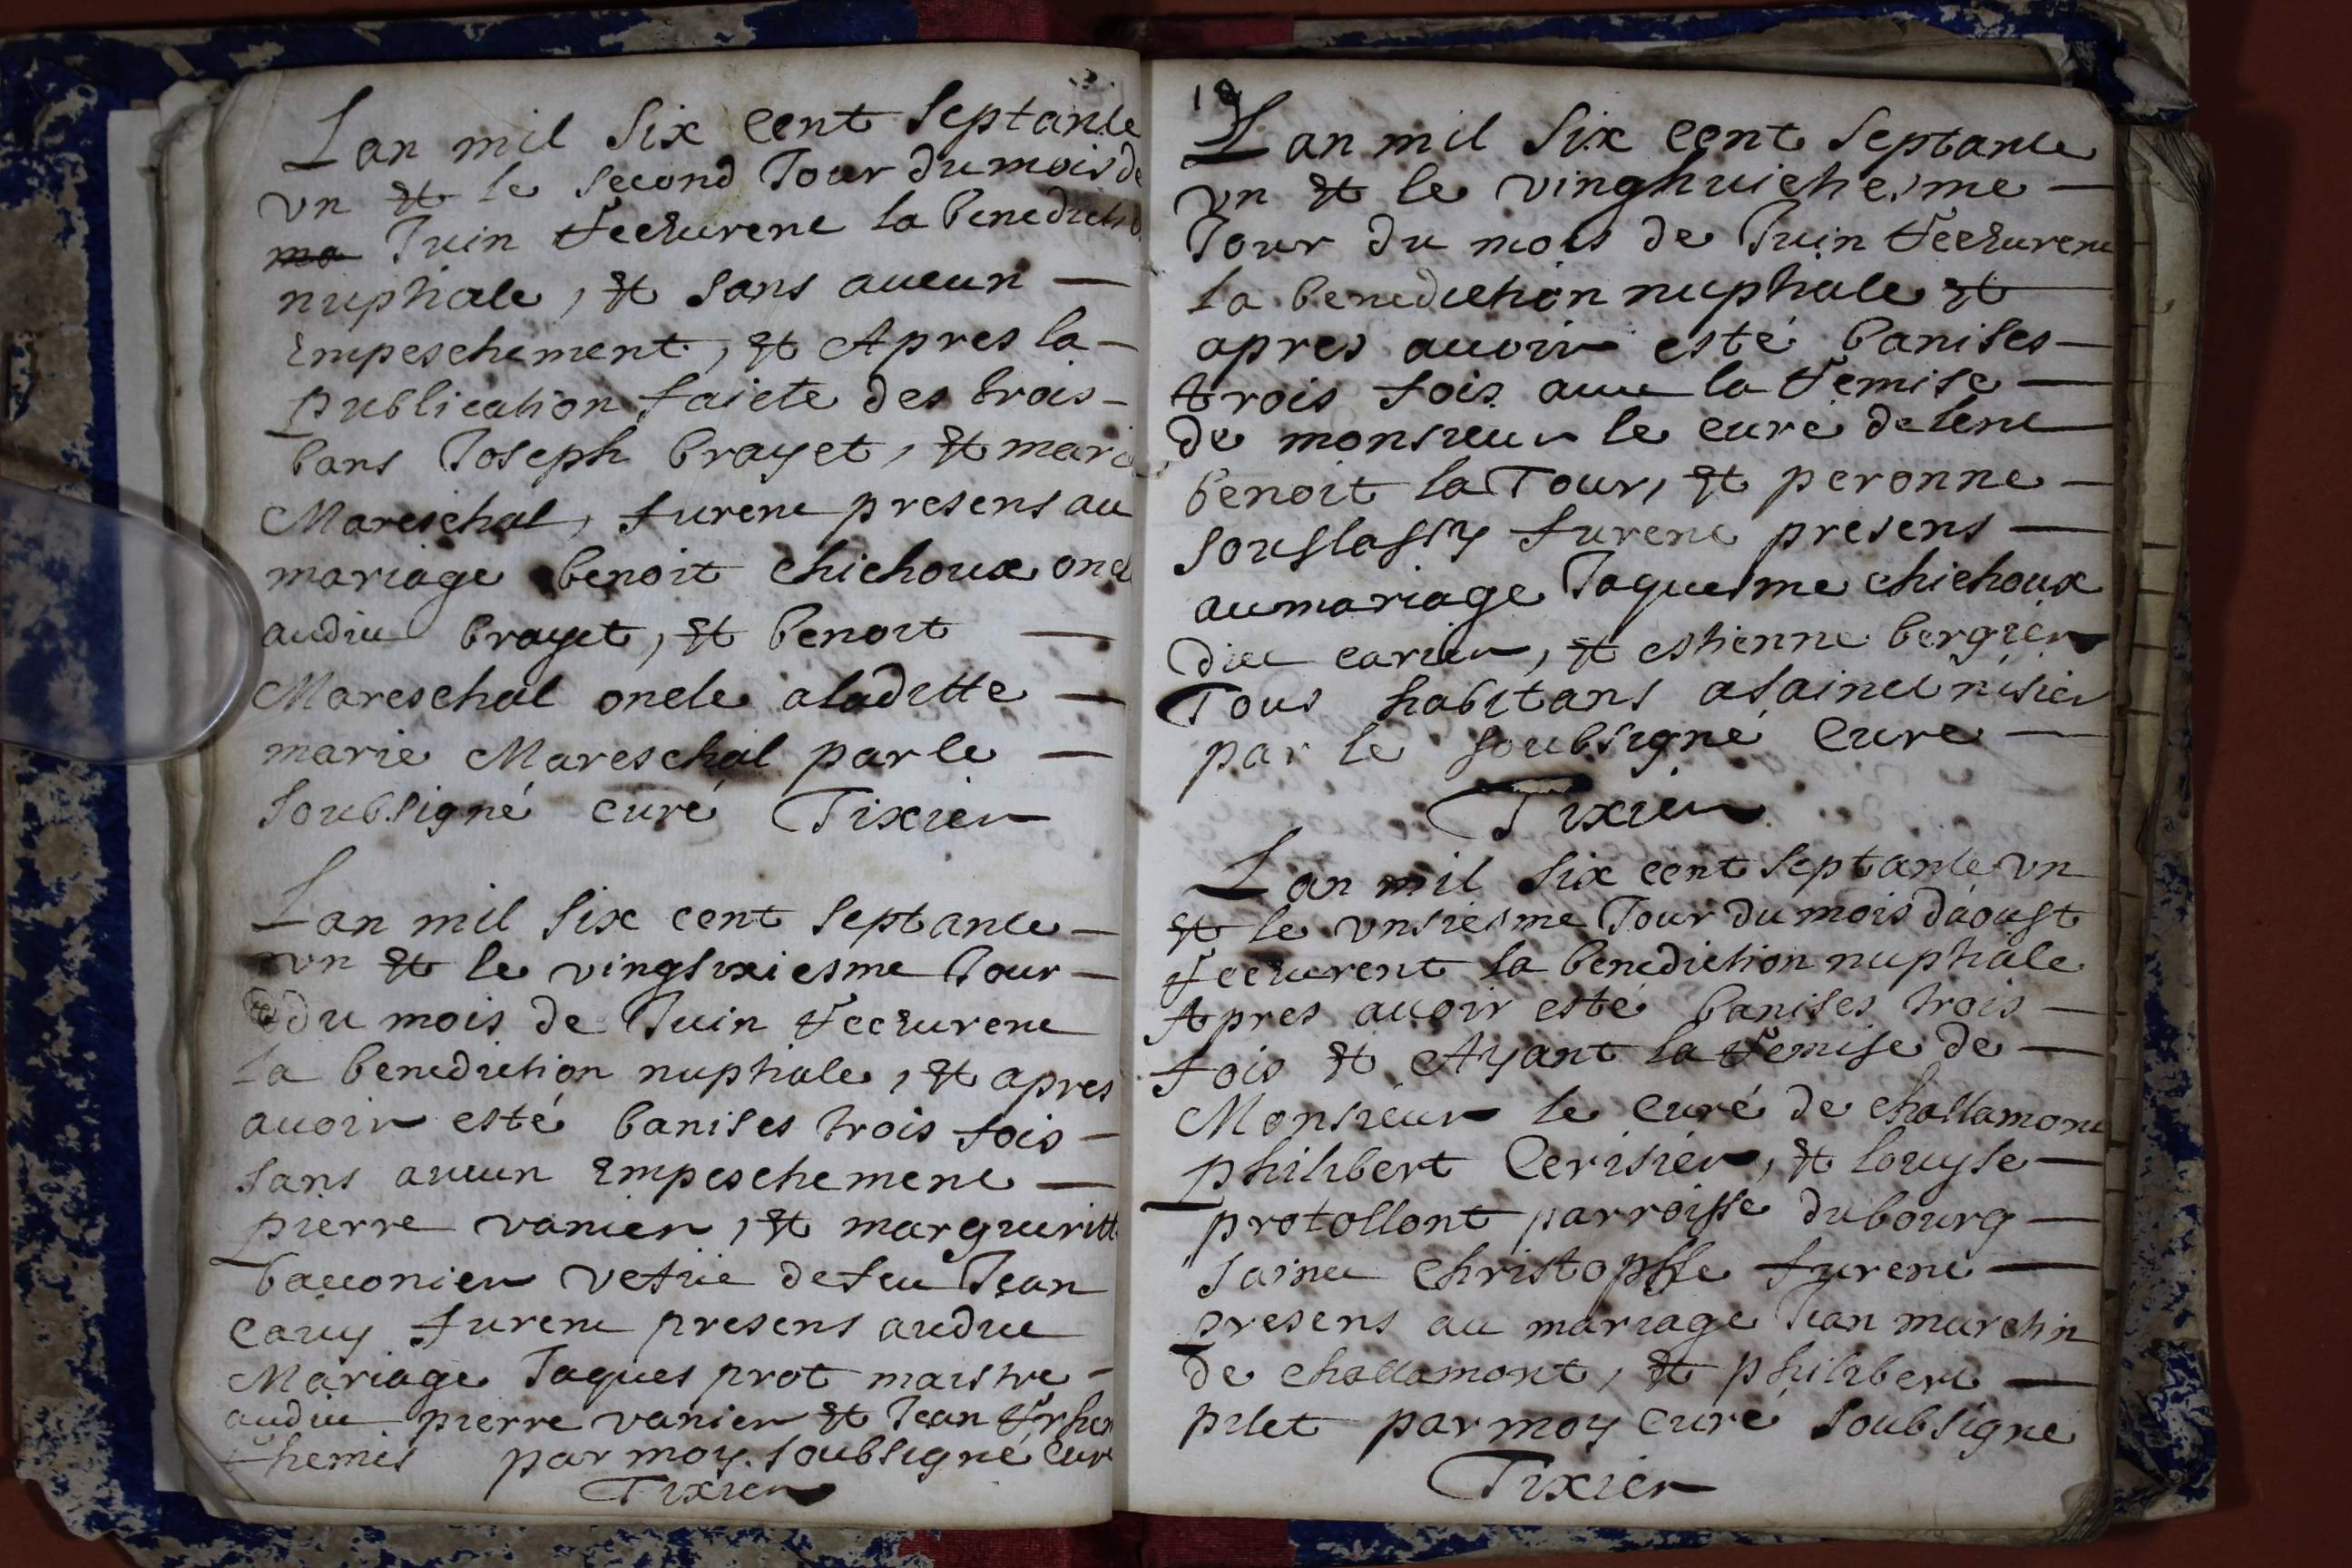 Lan mil six cent septante
vn et le second Jour du mois de
ma Juin Receurent la benediction
nuptiale, et sans aucun
Empeschement, et Apres la
publication faicte des trois
bans Joseph brayet, et marie
Mareschal, furent presens au
mariage benoit chichoux oncl
audict brayet, et benoit
Mareschal oncle aladitte
marie Mareschal par le
soubsigné curé Tixier
Lan mil six cent septante
vn et le vingsixiesme Jour
du mois de Juin Receurent
la benediction nuptiale, et apres
auoir esté banises trois fois
sans aucun Empeschement
pierre vanier, et margueritte
bauonier vefue de feu Jean
cauy furent presens audict
Mariage Jaques prot maistre
audict pierre vanier et Jean
par moy soubsigné Curé
Tixier
18
Lan mil six cent septante
vn et le vinghuictiesme
Jour du mois de Juin Receurent
la benediction nuptiale et
apres auoir esté banises
trois fois auec la Remise
de monsieur le curé de lent
benoit la Tour, et peronne
furent presens
au mariage Jaquesme chichoux
dict carier, et estienne bergier
Tous habitans a sainct nisier
par le soubsigné Curé
Tixier
Lan mil six cent septante vn
et le vnsiesme Jour du mois d'aoust
Receurent la benediction nuptiale
Apres auoir esté banises trois
fois et Ayant la Remise de
Monsieur le Curé de challamont
philibert Cerisier, et louyse
protollont parroisse du bourg
sainct Christophle furent
presens au mariage Jean martin
de challamont, et philibert
pilet par moy Curé soubsigné
Tixier